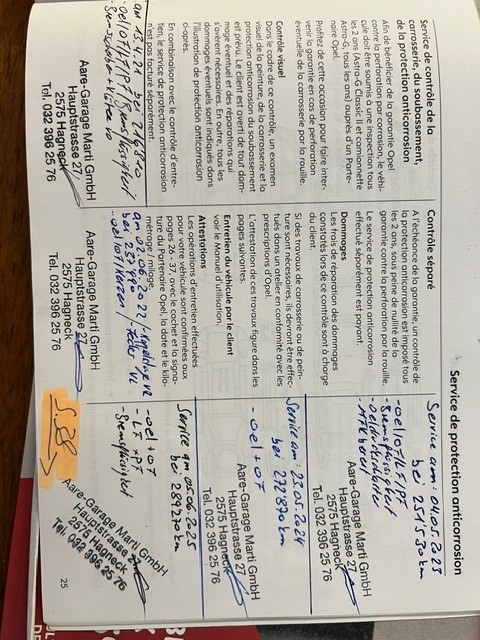 Service de protection anticorrosion
Service de contrôle de la
carrosserie, du soubassement,
de la protection anticorrosion
Afin de bénéficier de la garantie Opel
contre la perforation par corrosion, le véhi-
cule doit être soumis à une inspection tous
les 2 ans (Astra-G Classic II et camionnette
Astra-G, tous les ans) auprès d'un Parte-
Profitez de cette occasion pour faire inter-
venir la garantie en cas de perforation
éventuelle de la carrosserie par la rouille.
Contrôle visuel
Dans le cadre de ce contrôle, un examen
visuel de la peinture, de la carrosserie et la
protection anticorrosion du soubassement
est prévu. Le client est averti de tout dom-
mage éventuel et des réparations qui
s'avèrent nécessaires. En outre, tous les
dommages éventuels sont indiqués dans
l'illustration de protection anticorrosion
ci-après.
En combinaison avec le contrôle d'entre-
tien, le service de protection anticorrosion
n'est pas facturé séparément.
am 15.4.21 bei 216'810
-oel/OF/
Aare-Garage Marti GmbH
Hauptstrasse 27
2575 Hagneck
Tel. 032 396 25 76
Contrôle séparé
A l'échéance de la garantie, un contrôle de
la protection anticorrosion est imposé tous
les 2 ans, sous peine de nullité de la
garantie contre la perforation par la rouille.
Le service de protection anticorrosion
effectué séparément est payant.
Dommages
Les frais de réparation des dommages
constatés lors de ce contrôle sont à charge
du client.
Si des travaux de carrosserie ou de pein-
ture sont nécessaires, ils devront être effec-
tués dans un atelier en conformité avec les
prescriptions d'Opel.
L'attestation de ces travaux figure dans les
pages suivantes.
Entretien du véhicule par le client
voir le Manuel d'utilisation.
Attestations
Les opérations d'entretien effectuées
pour votre véhicule sont confirmées aux
pages 26 - 37, avec le cachet et la signa-
ture du Partenaire Opel, la date et le kilo-
métrage / milage.
am 02.06.2022
bei
-oel/OF/Kerzen/
Aare-Garage Marti GmbH
Hauptstrasse 27
2575 Hagneck
Tel. 032 396 25 76
Service am: 04.05.2023
bei 251'530km
-oel/OF/LF/PF
-Bremsflüssigkeit
-Oeldruckschalter
-MFK bereit
Aare-Garage Marti GmbH
Hauptstrasse 27
2575 Hagneck
Tel. 032 396 25 76
Service am: 23.05.2024
bei 272'870km
-oel + OF
Aare-Garage Marti GmbH
Hauptstrasse 27
2575 Hagneck
Tel. 032 396 25 76
Service am 05.06.2025
bei 289270km
-oel + OF
-LF + PF
-Bremsflüssigkeit
Aare-Garage Marti GmbH
Hauptstrasse 27
2575 Hagneck
Tel. 032 396 25 76
S. 38
25